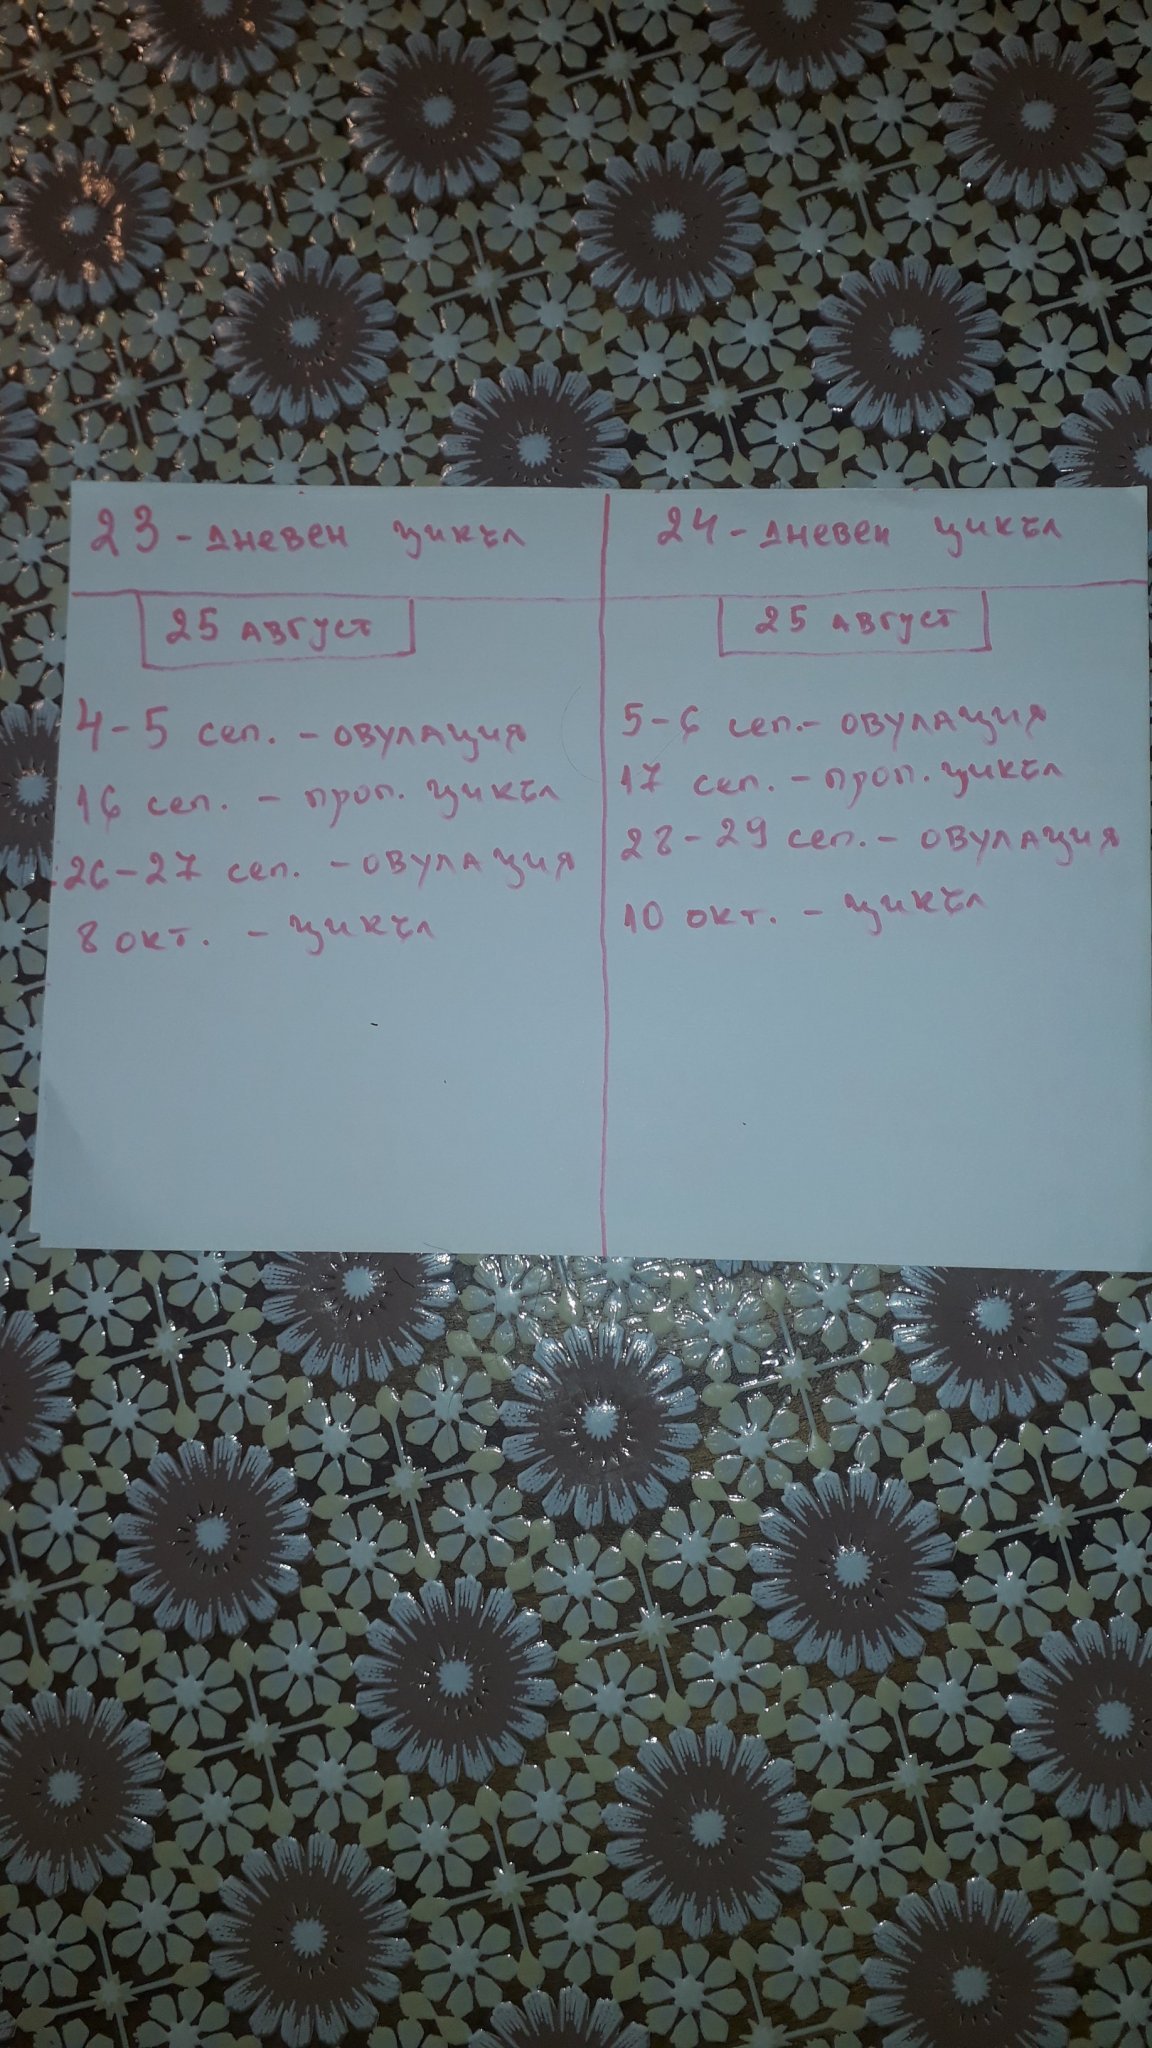 23 - дневен цикъл
25 август
4-5 сеп. - овулация
16 сеп. - проп. цикъл
26-27 сеп. - овулация
8 окт. - цикъл
24 - дневен цикъл
25 август
5-6 сеп. - овулация
17 сеп. - проп. цикъл
28-29 сеп. - овулация
10 окт. - цикъл